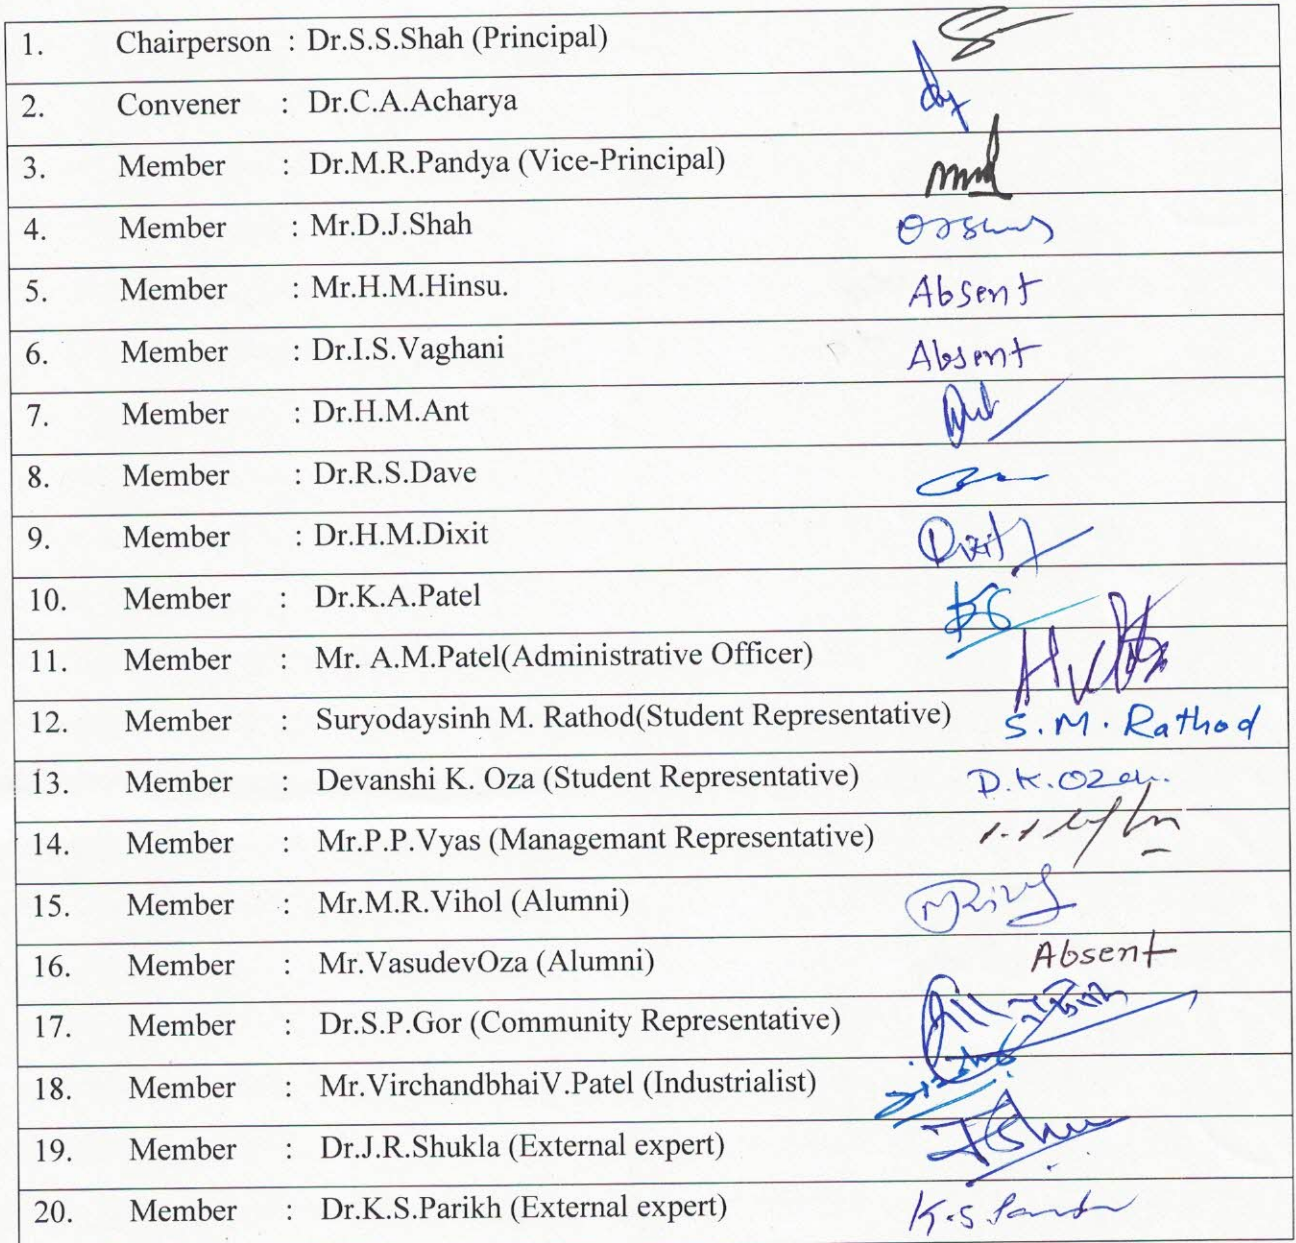 1. Chairperson : Dr.S.S.Shah (Principal)
2. Convener : Dr.C.A.Acharya
3. Member : Dr.M.R.Pandya (Vice-Principal)
4. Member : Mr.D.J.Shah
5. Member : Mr.H.M.Hinsu. Absent
6. Member : Dr.I.S.Vaghani Absent
7. Member : Dr.H.M.Ant
8. Member : Dr.R.S.Dave
9. Member : Dr.H.M.Dixit Dixit
10. Member : Dr.K.A.Patel
11. Member : Mr. A.M.Patel(Administrative Officer)
12. Member : Suryodaysinh M. Rathod(Student Representative) S.M. Rathod
13. Member : Devanshi K. Oza (Student Representative) D.K.Oza
14. Member : Mr.P.P.Vyas (Managemant Representative)
15. Member : Mr.M.R.Vihol (Alumni)
16. Member : Mr.VasudevOza (Alumni) Absent
17. Member : Dr.S.P.Gor (Community Representative)
18. Member : Mr.VirchandbhaiV.Patel (Industrialist)
19. Member : Dr.J.R.Shukla (External expert)
20. Member : Dr.K.S.Parikh (External expert) K.S.